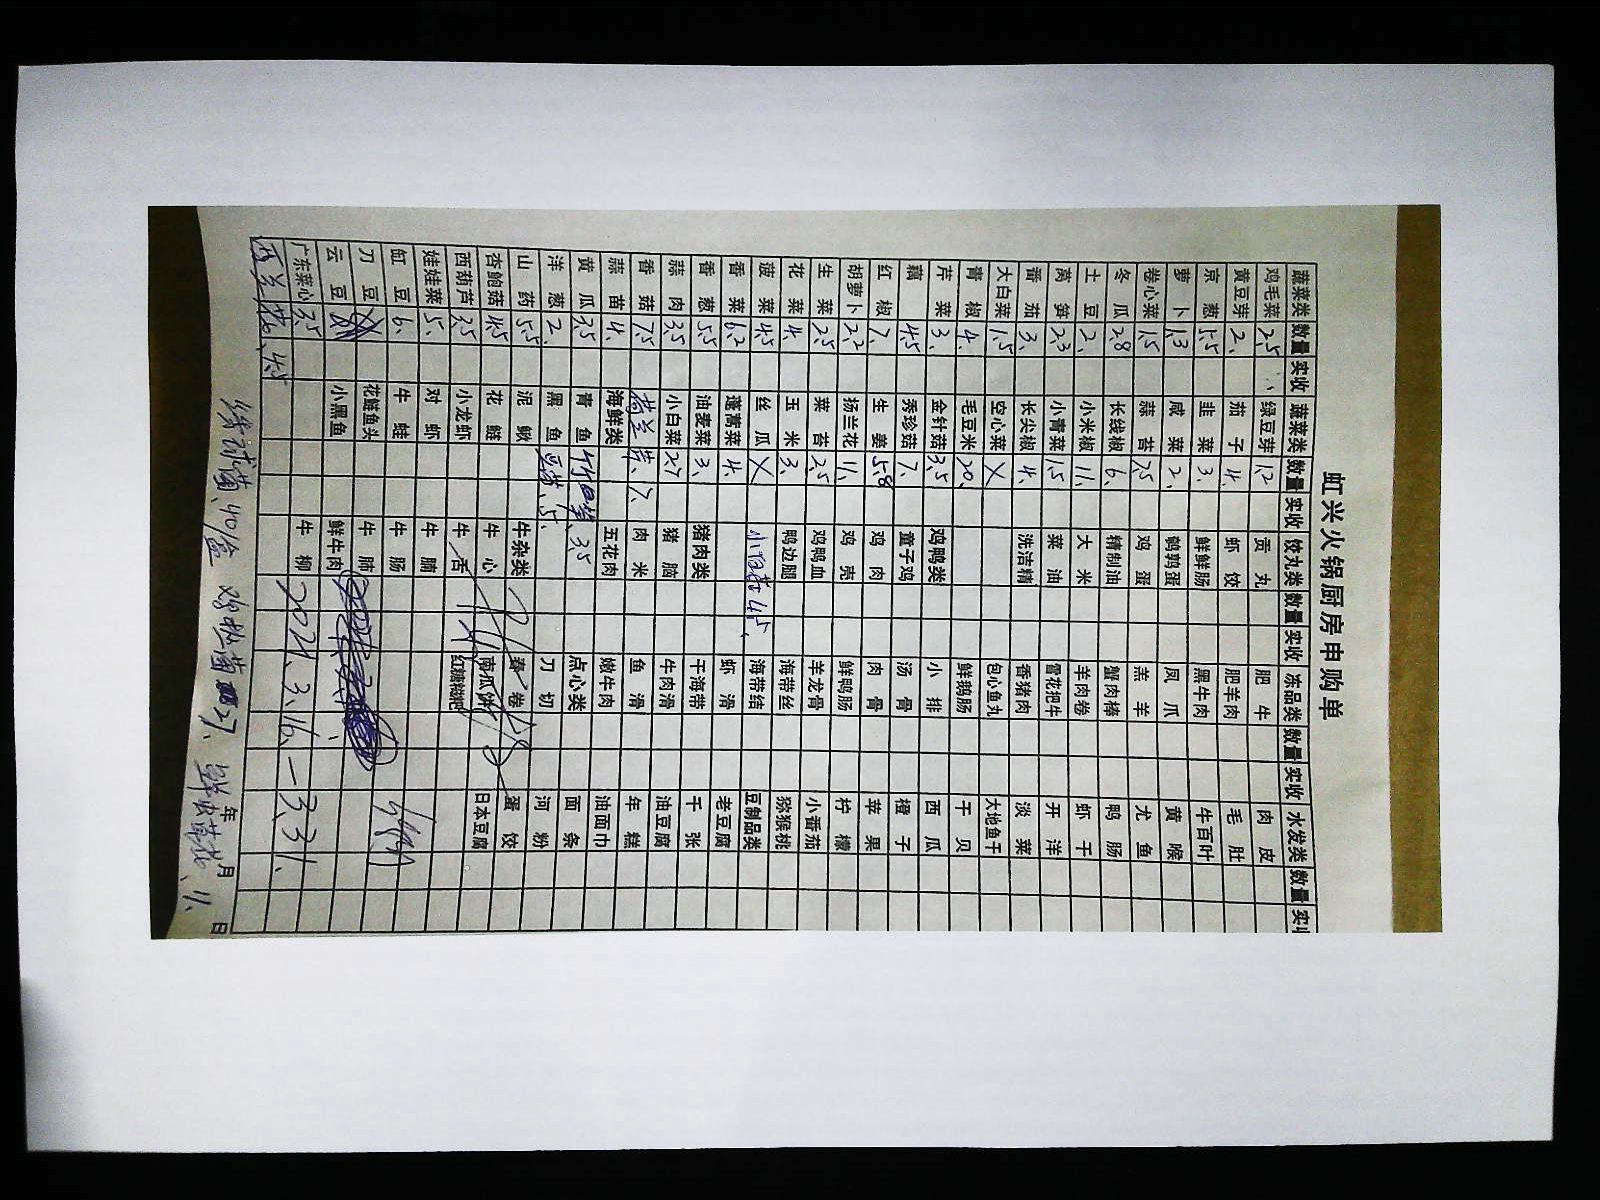 虹兴火锅厨房申购单
蔬菜类 数量 实收 蔬菜类 数量 实收 饺丸类 数量 实收 冻品类 数量 实收 水发类 数量 实收
鸡毛菜 2.5 绿豆芽 1.2 贡丸 肥牛 肉皮
黄豆芽 2. 茄子 4. 虾饺 肥羊肉 毛肚
京葱 5.5 韭菜 3. 鲜鲜肠 黑牛肉 牛百叶
萝卜 1.3 咸菜 2. 鹌鹑蛋 凤爪 黄喉
卷心菜 1.5 蒜苔 7.5 鸡蛋 羔羊 尤鱼
冬瓜 2.8 长线椒 6. 精制油 蟹肉棒 鸭肠
土豆 2. 小米椒 11. 大米 羊肉卷 虾干
莴笋 2.3 小青菜 1.5 菜油 雪花把牛 开洋
番茄 3. 长尖椒 4. 洗洁精 香猪肉 淡菜
大白菜 1.5 空心菜 X 包心鱼丸 大地鱼干
青椒 4. 毛豆米 20. 鲜鹅肠 干贝
芹菜 3. 金针菇 3.5 鸡鸭类 小排 西瓜
藕 4.5 秀珍菇 7. 童子鸡 汤骨 橙子
红椒 7. 生姜 5.8 鸡肉 肉骨 苹果
胡萝卜 2.2 扬兰花 11. 鸡壳 鲜鸭肠 柠檬
生菜 2.5 菜苔 2.5 鸡鸭血 羊龙骨 小番茄
花菜 4. 玉米 3. 鸭边腿 海带丝 猕猴桃
菠菜 4.5 丝瓜 X 4.5. 海带结 豆制品类
香菜 6.2 蓬蒿菜 4. 虾滑 老豆腐
香葱 5.5 油麦菜 3. 猪肉类 干海带 千张
蒜肉 3.5 小白菜 2.7 猪脑 牛肉滑 油豆腐
香菇 7.5 7. 肉米 鱼滑 年糕
蒜苗 4. 海鲜类 五花肉 嫩牛肉 油面巾
黄瓜 3.5 青鱼 3.5 点心类 面条
洋葱 2. 黑鱼 豆苗. 5. 刀切 河粉
山药 5.5 泥鳅 牛杂类 春卷 蛋饺
杏鲍菇 4.5 花鲢 牛心 南瓜饼 日本豆腐
西葫芦 3.5 小龙虾 牛舌 红糖糍粑
娃娃菜 5. 对虾 牛腩
缸豆 6. 牛蛙 牛肠
刀豆 花鲢鱼头 牛肺
云豆 小黑鱼 鲜牛肉
广东菜心 3.5 牛柳 2021.3.16.—3.31.
4.5
年 月 日